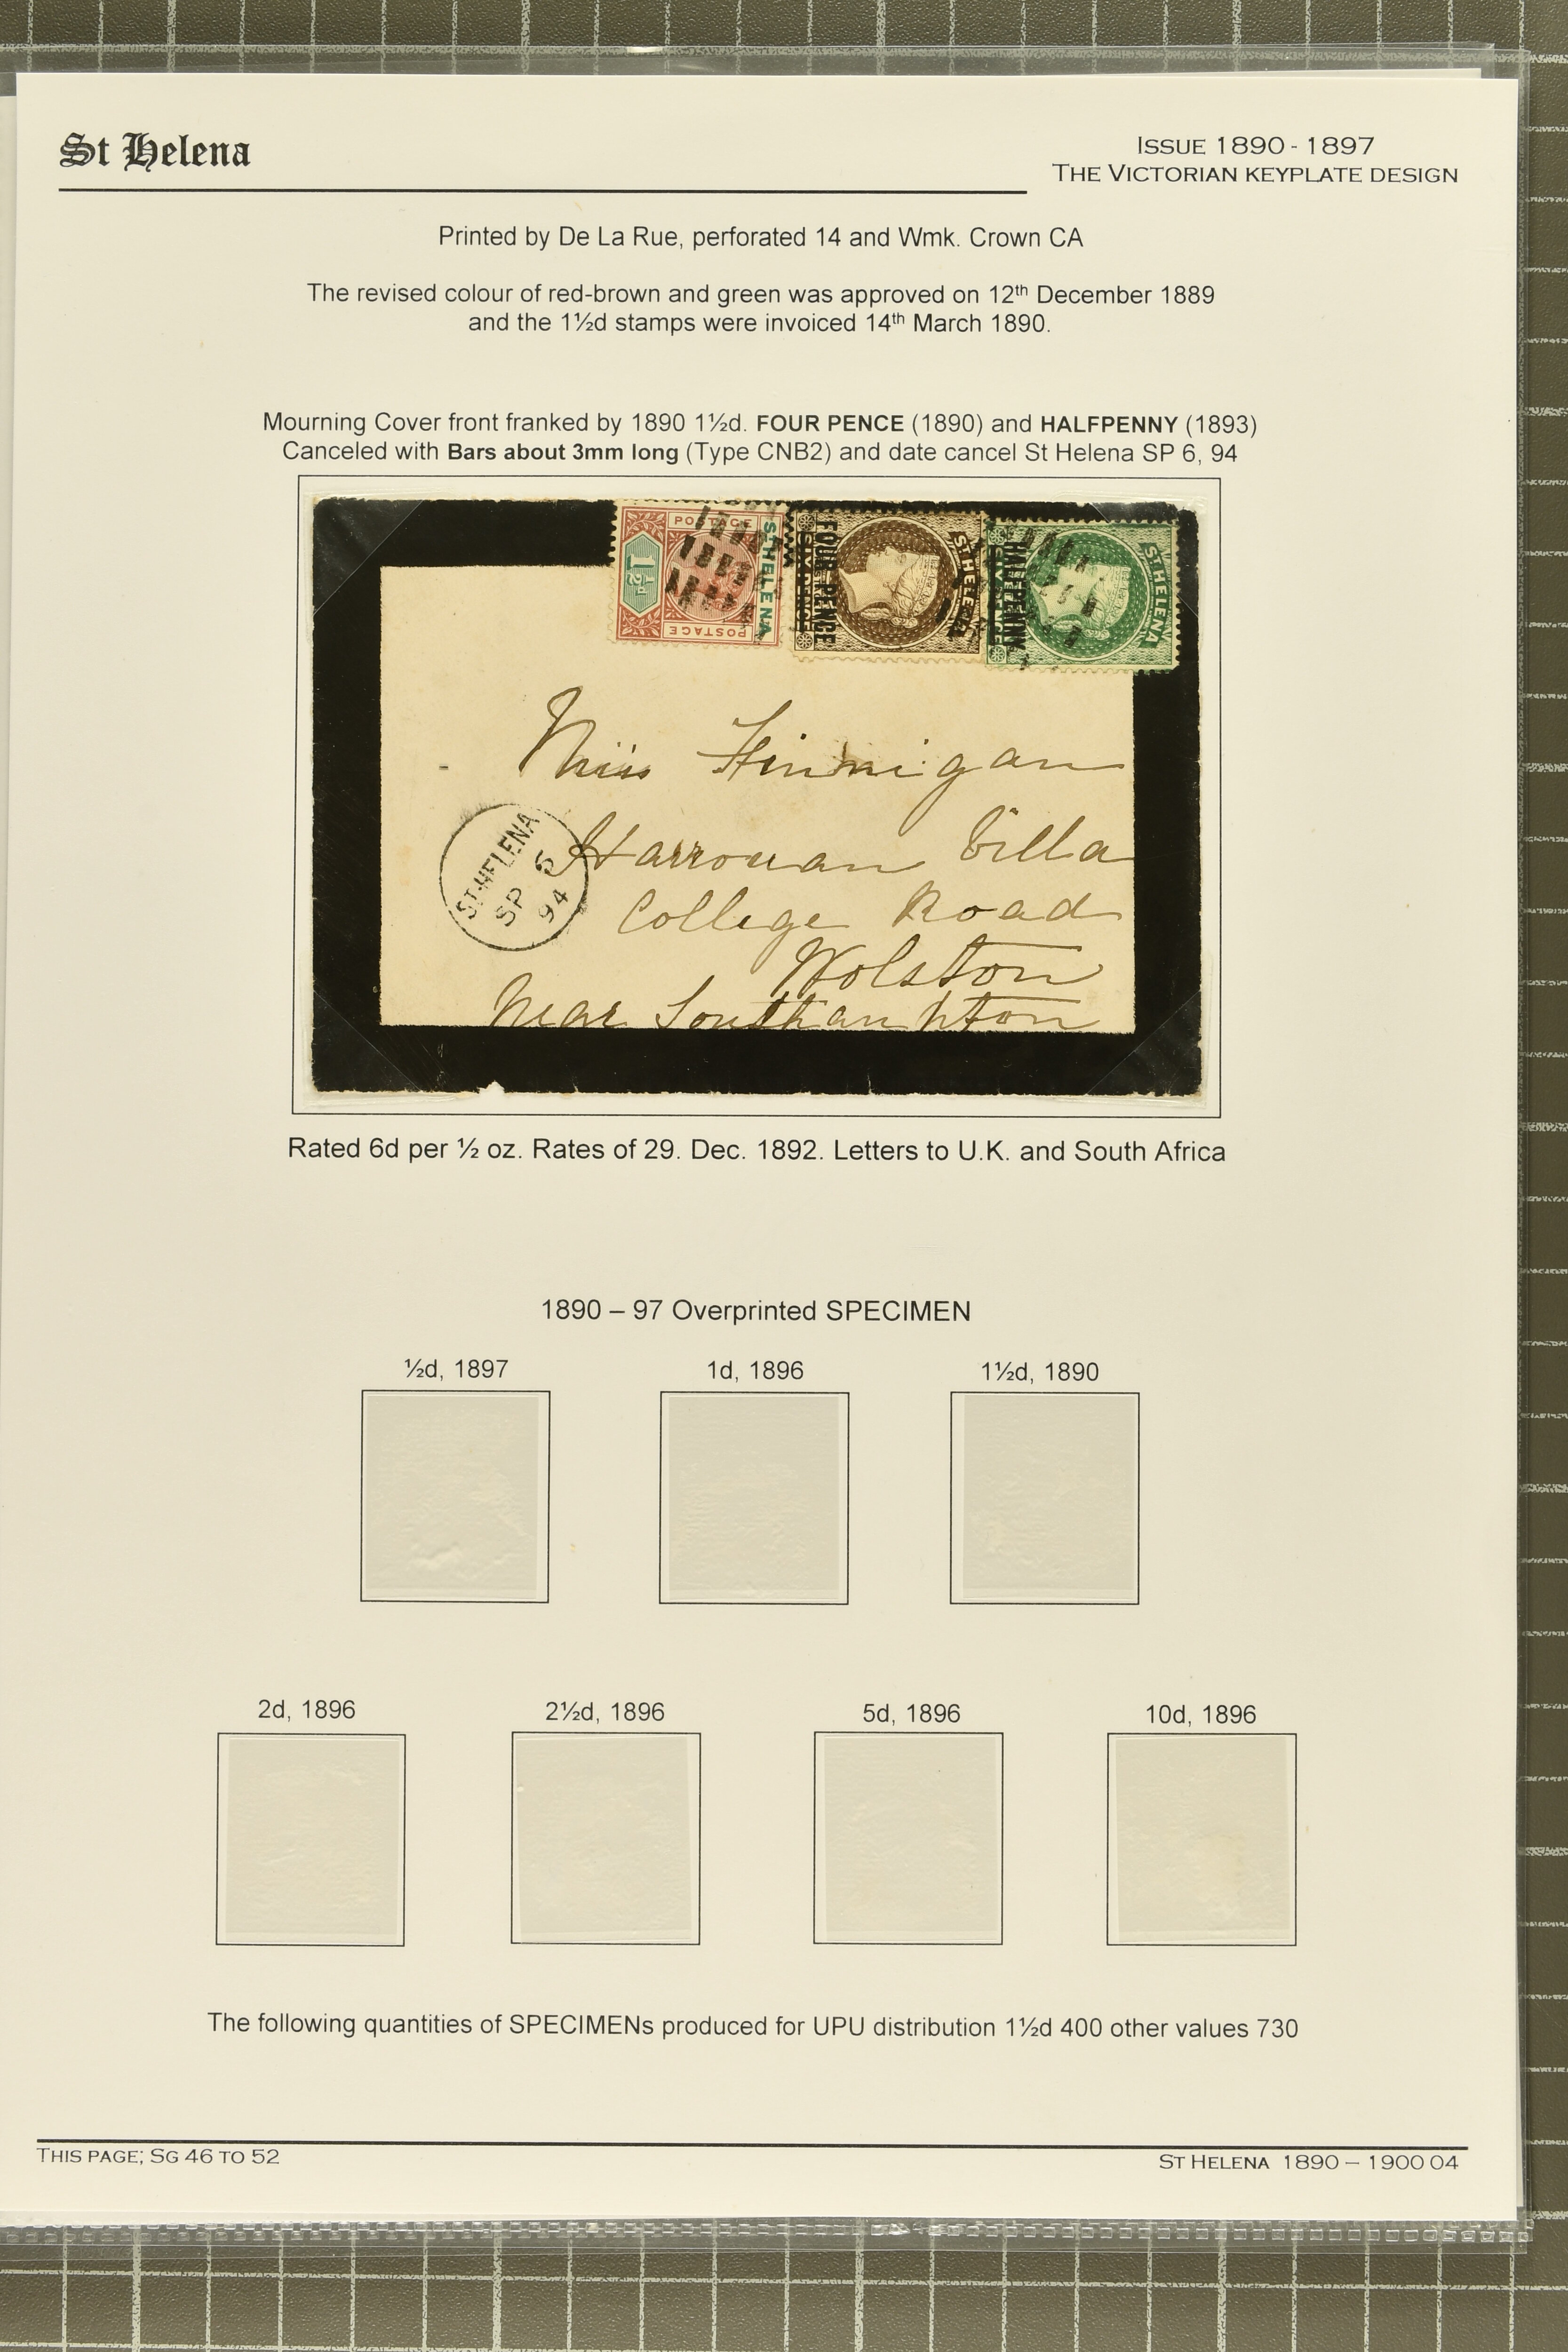 St Helena
ISSUE 1890 - 1897
THE VICTORIAN KEYPLATE DESIGN
Printed by De La Rue, perforated 14 and Wmk. Crown CA
The revised colour of red-brown and green was approved on 12th December 1889
and the 1½d stamps were invoiced 14th March 1890.
Mourning Cover front franked by 1890 1½d. FOUR PENCE (1890) and HALFPENNY (1893)
Canceled with Bars about 3mm long (Type CNB2) and date cancel St Helena SP 6, 94
POSTAGE
ST HELENA
1½d
POSTAGE
FOUR PENCE
SIX PENCE
ST HELENA
HALFPENNY
SIX PENCE
ST HELENA
Miss Finnigan
Villa
College Road
Wolston
Near Southampton
ST. HELENA
SP 6
94
Rated 6d per ½ oz. Rates of 29. Dec. 1892. Letters to U.K. and South Africa
1890 – 97 Overprinted SPECIMEN
½d, 1897
1d, 1896
1½d, 1890
2d, 1896
2½d, 1896
5d, 1896
10d, 1896
The following quantities of SPECIMENs produced for UPU distribution 1½d 400 other values 730
THIS PAGE; SG 46 TO 52
ST HELENA 1890 – 1900 04